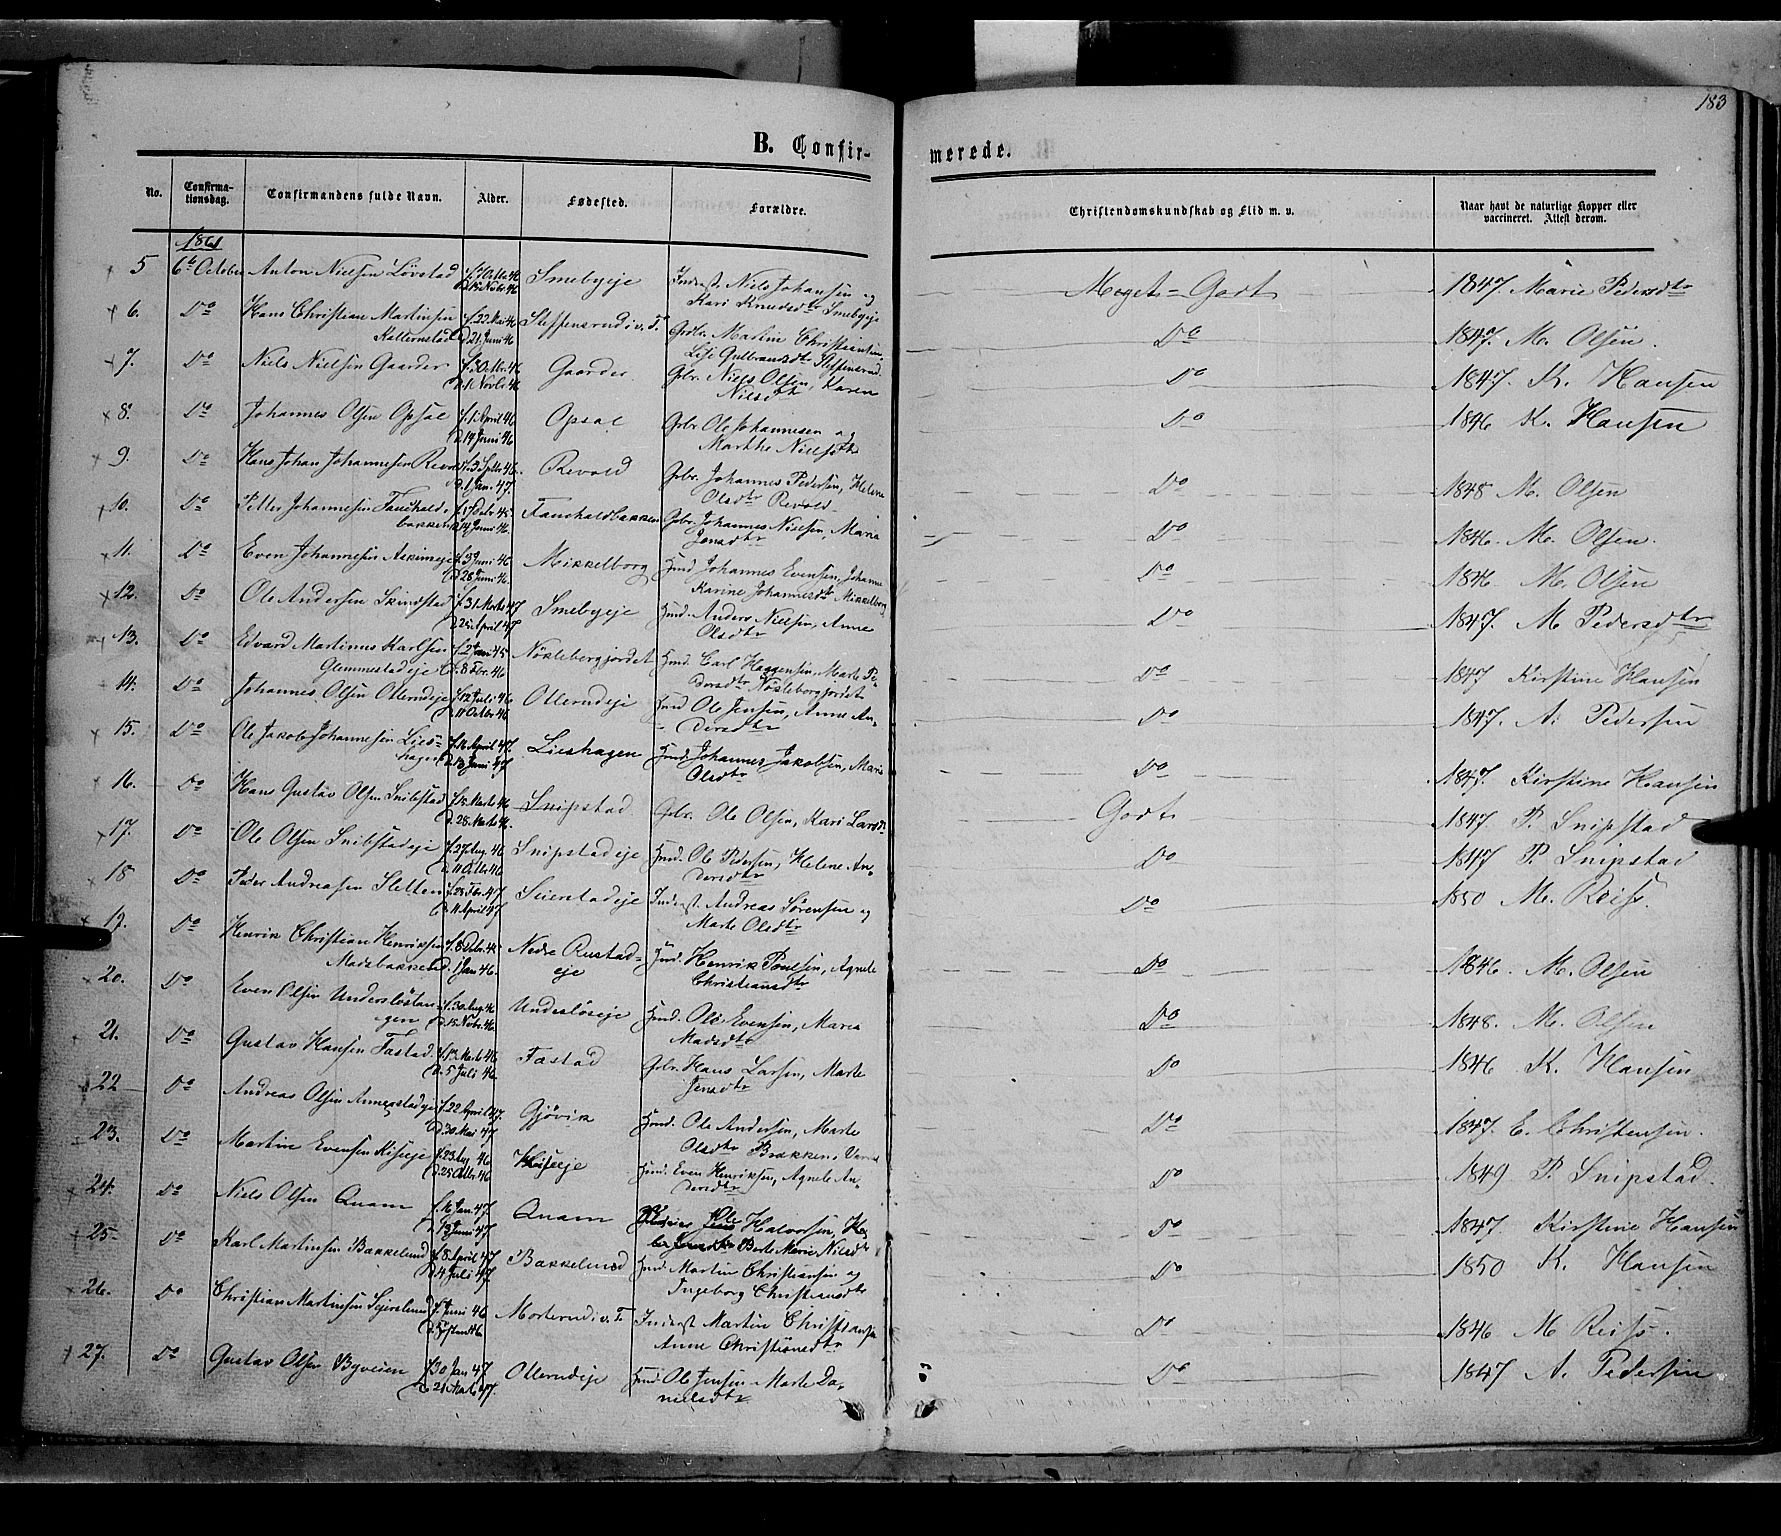 183
B. Confir-
merede.
No.
Confirma-
tionsdag.
Confirmandens fulde Navn.
Alder.
Fødested.
Forældre.
Christendomskundskab og Flid m. v.
Naar havt de naturlige Kopper eller
vaccineret. Attest derom.
1861
5 6te October Anton Nielsen Løvstad f. 7 Octbr 46 Smebyeje Inderst Niels Johansen og Meget-Godt 1847 Marie Pedersdtr
D. 15 Novbr. 46 Kari Knudsdtr Smebyeje
6. Do Hans Christian Martinsen f. 22 Mai 46 Steffensrud i v. T. Gbr. Martin Christiansen Do 1847. M. Olsen.
Kallernstad D. 21 Juni 46 Lise Gulbrandsdtr Steffensrud
7. Do Niels Nielsen Gaarder f. 3 Octbr. 46 Gaarder Gbr. Niels Olsen, Karen Do 1847. K. Hansen
D. 1 Novbr 46 Nilsdtr
8. Do Johannes Olsen Opsal f. 1 April 46 Opsal Gbr. Ole Johannesen og Do 1846 K. Hansen
D. 14 Juni 46 Marthe Nielsdtr
9. Do Hans Johan Johannesen Revold f. 3 Septbr 46. Revold Gbr. Johannes Pedersen, Helene Do 1848 M. Olsen
D. 1 Jan. 47. Olsdtr Revold
10. Do Petter Johannesen Fauchald- f. 17 Debr 45. Fauchaldbakken Gbr. Johannes Nielsen, Maria Do 1846. M. Olsen.
bakken D. 14 Juni 46. Jensdtr
11. Do Even Johannesen Askimeje f. 3 Juni 46 Mikkelborg Huusmd Johannes Evensen, Johanne Do 1846. M. Olsen
D. 28 Juni 46. Karine Johannesdtr Mikkelborg
12. Do Ole Andersen Skindstad f. 31 Marts 47 Smebyeje Huusmd. Anders Nielsen, Anne Do 1847. M Pedersdtr
D. 25 April 47 Olsdtr
13. Do Edvard Martinus Karlsen f. 2 Juni 45 Nøslebergjordet Huusmd. Carl Haagensen, Marte Pe- Do 1847 Kirstine Hansen
Glemmestadeje D. 8 Fbr. 46 dersdtr Nøslebergjordet
14. Do Johannes Olsen Ollerudeje f. 12 Juli 46 Ollerudeje Huusmd Ole Jensen, Anne An- Do 1847. A. Pedersen
D. 11 Octbr 46 dersdtr
15. Do Ole Jakob Johannesen Lies- f. 16 April 47. Lieshagen Huusmd Johannes Jakobsen, Maria Do 1847. Kirstine Hansen
hagen D. 13 Juni 47 Olsdtr
16. Do Hans Gustav Olsen Snibstad f. 15 Marts 46 Snipstad Gbr. Ole Olsen, Kari Larsdtr Godt 1847. P. Snipstad
D. 28 Marts 46.
17. Do Ole Olsen Snibstadeje f. 27 Aug. 46 Snipstadeje Huusmd. Ole Pedersen, Helene An- Do 1847 P. Snipstad
D. 11 Octbr 46 dersdtr
18 Do Peder Andreasen Sletten f. 23 Fbr. 47 Seierstadeje Inderst Andreas Sørensen og Do 1850 M. Reiss.
D. 11 April 47 Marte Olsdtr
19. Do Henrik Christian Henriksen f. 8 Debr. 45 Nedre Rustad- Huusmd Henrik Poulsen, Agnete Do 1846. M. Olsen
Madsbakken D. 1 Jan 46. eje Christiansdtr
20. Do Even Olsen Undersløstan- f. 30 Aug. 46 Undersløseje Huusmd. Ole Evensen, Maria Do 1848. M. Olsen
gen D. 15 Novbr. 46 Madsdtr
21. Do Gustav Hansen Fastad. f. 13 Marts 46 Fastad Gbr. Hans Larsen, Marte Do 1846 K. Hansen
D. 5 Juli 46 Jensdtr
22 Do Andreas Olsen Annerstadeje f. 22 April 47. Gjøvik Huusmd. Ole Andersen, Marte Do 1847. E. Christensen.
D. 30 Mai 47 Olsdtr Brakken, Vard
23. Do Martin Evensen Kiseeje f. 23 Aug 46 Kiseeje Huusmd. Even Henriksen, Agnete An- Do 1849 P. Snipstad.
D. 25 Octbr 46 dersdtr
24. Do Niels Olsen Qvam f. 16 Jan. 47. Qvam Ole Halvorsen, Do 1847. Kirstine Hansen
D. 13 Juni 47 Berte Marie Nilsdtr
25 Do Karl Martinsen Bakkelund f. 8 April 47 Bakkelund Huusmd. Martin Christiansen og Do 1850 K. Hansen
D. 4 Juli 47 Ingeborg Christiansdtr
26. Do Christian Martinsen Sejerslund f. Juni 46 Morterud i v. T. Inderst Martin Christiansen Do 1846 M Reiss.
D. Septembr 46 Anne Christiansdtr
27. Do Gustav Olsen Byveien f. 30 Jan 47 Ollerudeje Huusmd. Ole Jensen Marte Da- Do 1847 A. Pedersen
D. 21 Marts 47. nielsdtr.